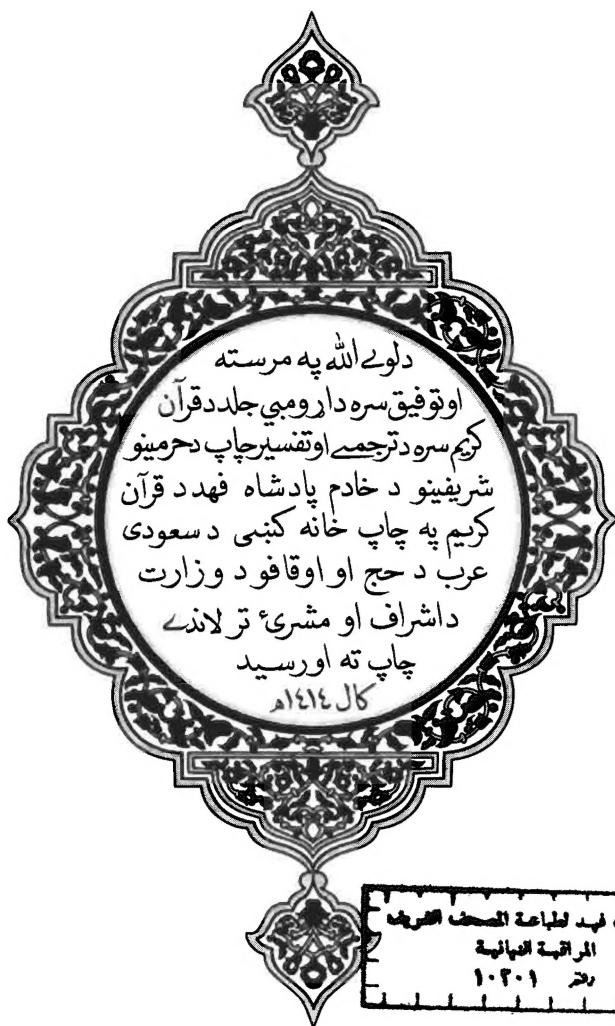 دلوے الله په مرسته
اوتوفیق سره دا ړومبي جلد د قرآن
کریم سره د ترجمے او تفسیر چاپ د حرمینو
شریفینو د خادم پادشاه فهد د قرآن
کریم په چاپ خانه کښی د سعودی
عرب د حج او اوقافو د وزارت
د اشراف او مشرئ تر لاندے
چاپ ته اورسید
کال ١٤١٤ه
فهد لطباعة المصحف الشريف
المراقبة النهائية
١٠٢٠١